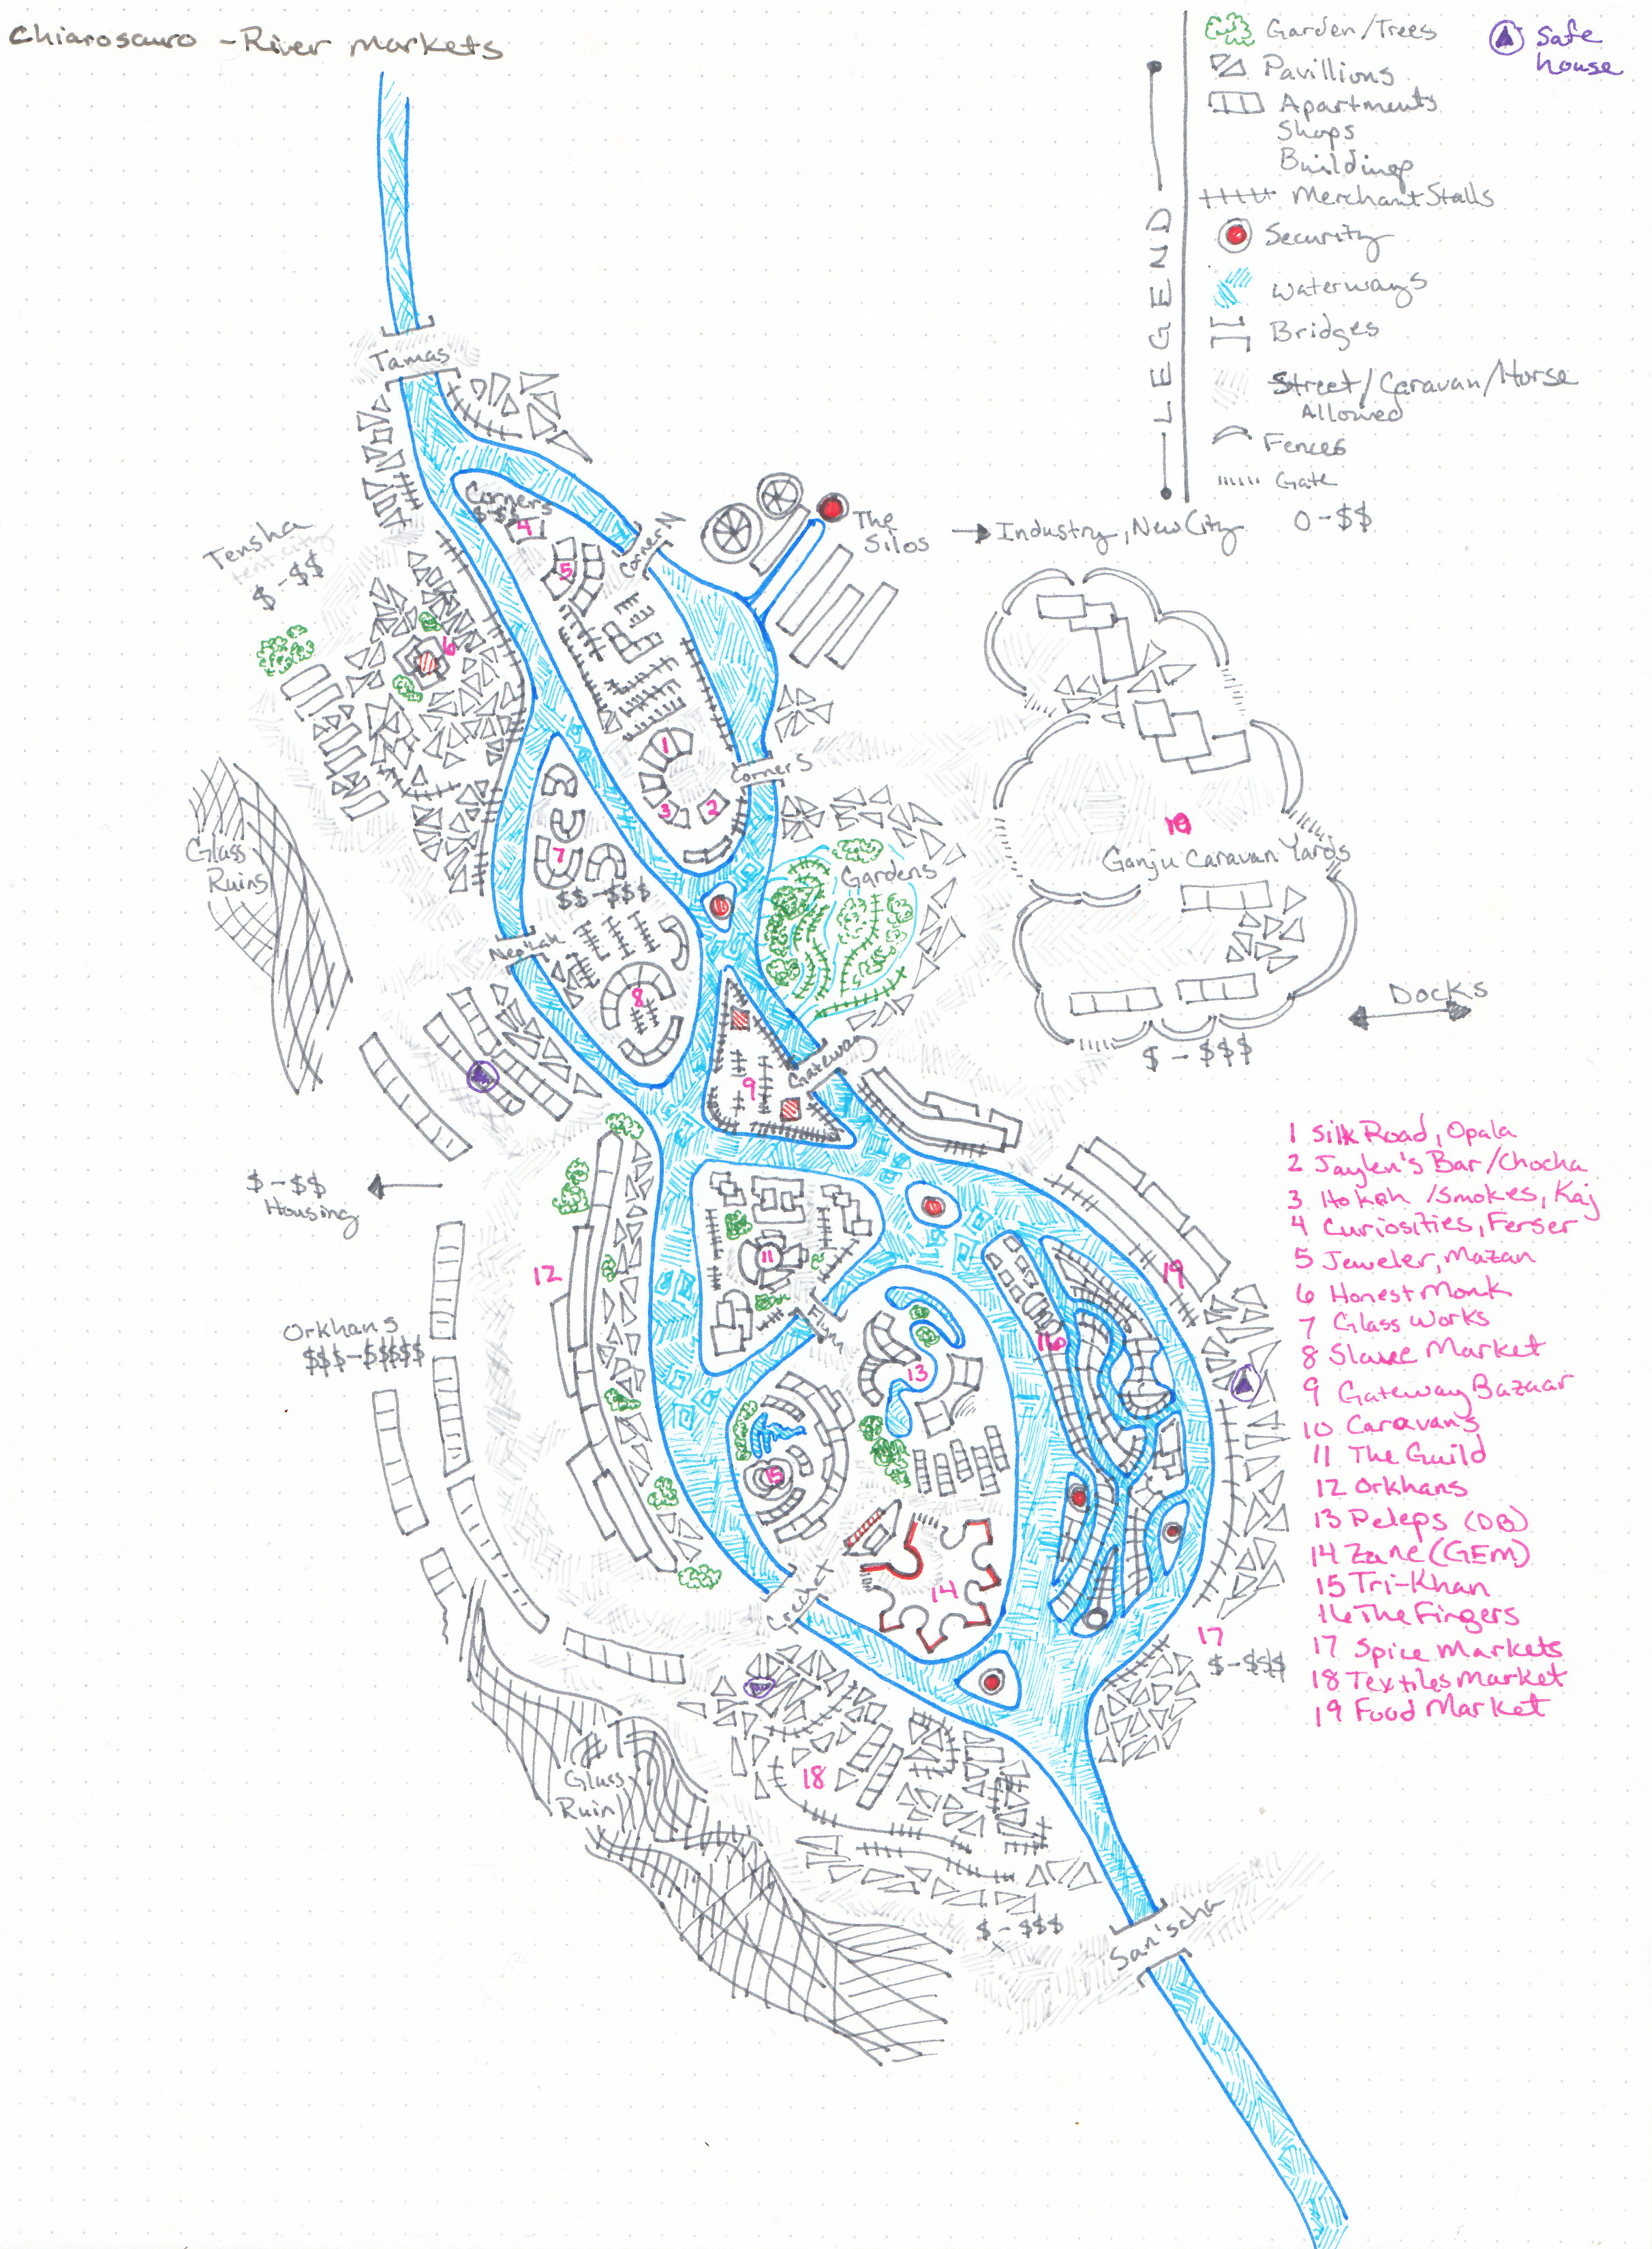 Chiarosauro - River Markets
LEGEND
Garden/Trees
Pavillions
Apartments
Shops
Buildings
Merchant Stalls
Security
Waterways
Bridges
Street/Caravan/Horse
Allowed
Fences
Gate
Safe
house
Tamas
Corners
$-$$
4
5
Corner N
The
Silos
Industry, New City
0-$$
Tensha
tent city
$-$$
6
1
3
2
Corner S
7
$$-$$$
Glass
Ruins
Gardens
10
Ganju Caravan Yards
$-$$$
Docks
8
9
Gateway
$-$$
Housing
11
12
Orkhans
$$$-$$$$$
13
14
15
16
19
17
$-$$$
18
Glass
Ruin
$-$$$
San'scha
1 Silk Road, Opala
2 Jaylen's Bar/Chocha
3 Hokah/Smokes, Kaj
4 Curiosities, Ferser
5 Jeweler, Mazan
6 Honest Monk
7 Glass Works
8 Slave Market
9 Gateway Bazaar
10 Caravans
11 The Guild
12 Orkhans
13 Peleps (DB)
14 Zane (GEM)
15 Tri-Khan
16 The Fingers
17 Spice Markets
18 Textiles Market
19 Food Market